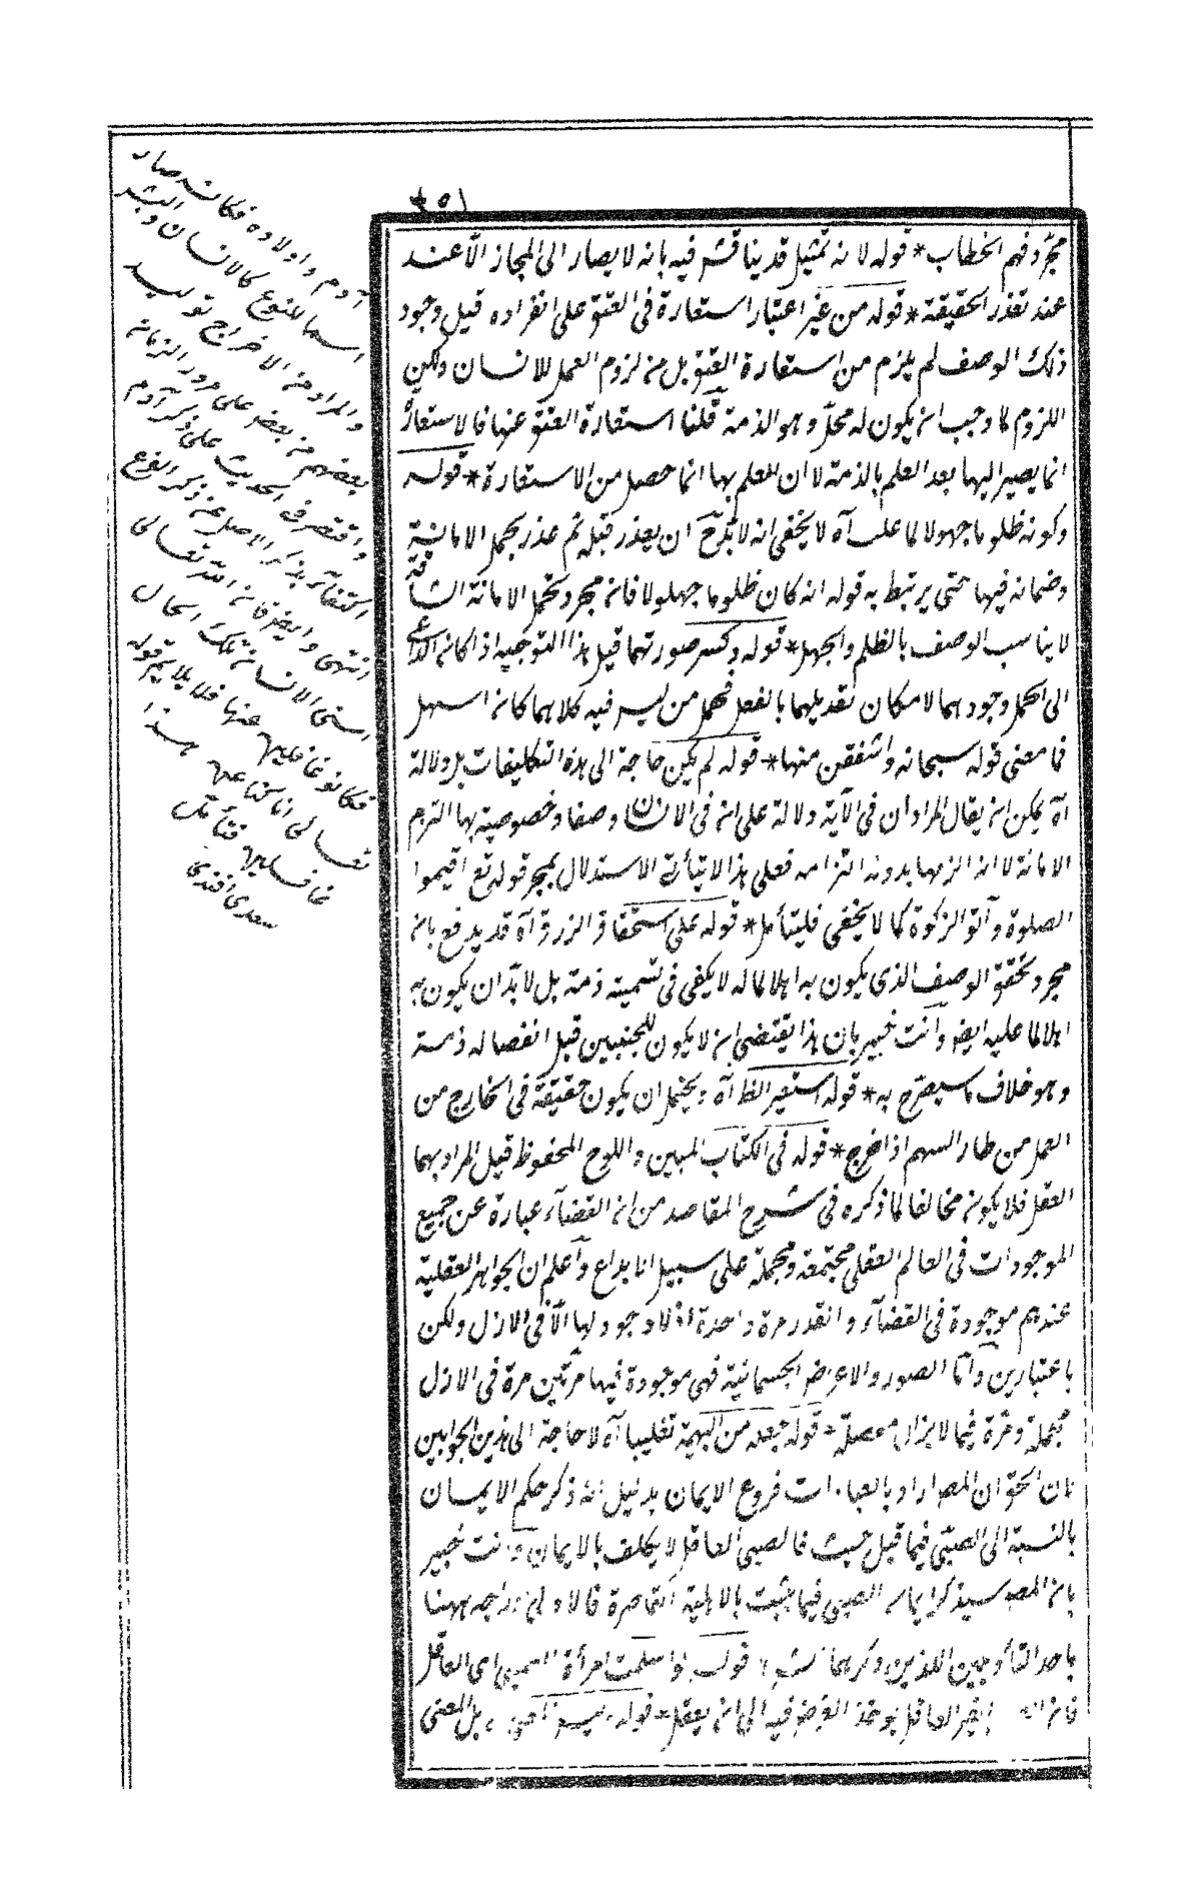 ٣٥١
مجرد فهم الخطاب * قوله لانه تمثيل قد يناقش فيه بانه لا يصار الى المجاز الا عند
عند تعذر الحقيقة * قوله من غير اعتبار استعارة فى العنق على انفراده قيل وجود
ذلك الوصف لم يلزم من استعارة العنق بل من لزوم العمل للانسان ولكن
اللزوم لما وجب ان يكون له محل وهو الذمة قلنا استعارة العنق عنها فالاستعارة
انما يصير اليها بعد العلم بالذمة لا ان العلم بها انما حصل من الاستعارة * قوله
وكونه ظلوما جهولا لما علب آه لا يخفى انه لا ان يعذر قبله ثم عذر بحمل الامانة
وضمانه فيها حتى يرتبط به قوله انه كان ظلوما جهولا فانه مجرد تحمل الامانة الشاقة
لا يناسب الوصف بالظلم والجهل * قوله وكسر صورتهما قيل هذا التوجيه اذا كان الداعى
الى الحمل وجودهما لامكان تعديلهما بالفعل فحمل من ليس فيه كلاهما كان اسهل
فما معنى قوله سبحانه واشفقن منها * قوله لم يكن حاجة الى هذه التكليفات بل دلالة
آه يمكن ان يقال المراد ان فى الآية دلالة على ان فى الانسان وصفا وخصوصية بها التزم
الامانة لا انه الزمها بدون التزامه فعلى هذا لا يتأتى الاستدلال بمجرد قوله تع اقيموا
الصلوة وآتوا الزكوة كما لا يخفى فليتأمل * قوله على استحقاق الرزق آه قد يدفع بان
مجرد تحقق الوصف الذى يكون به اهلا لما له لا يكفى فى تسميته ذمة بل لا بد ان يكون به
اهلا لما عليه ايضا وانت خبير بان هذا يقتضى ان لا يكون للجنين قبل انفصاله ذمة
وهو خلاف ما سيصرح به * قوله استعير الظ آه ويحتمل ان يكون حقيقة فى الخارج من
العمل من طار السهم اذا خرج * قوله فى الكتاب المبين واللوح المحفوظ قيل المراد بهما
العقل فلا يكون مخالفا لما ذكره فى شرح المقاصد من ان القضآء عبارة عن جميع
الموجودات فى العالم العقلى مجتمعة ومجملة على سبيل الابداع واعلم ان الجواهر العقلية
عندهم موجودة فى القضآء والقدر مرة واحدة اذ لا وجود لها الا فى الازل ولكن
باعتبارين واما الصور والاعراض الجسمانية فهى موجودة فيها مرتين مرة فى الازل
مجملة ومرة فيما لا يزال مفصلة * قوله جعله من البهيمة تغليبا آه لا حاجة الى هذين الجوابين
فان الحق ان المص اراد بالعبادات فروع الايمان بدليل انه ذكر حكم الايمان
بالنسبة الى الصبى فيما قبل حيث قال صبى العاقل لا يكلف بالايمان وانت خبير
بان المص سيذكر ايمان الصبى فيما يثبت بالاهلية القاصرة فالاولى ههنا
باحد التأويلين اللذين ذكرهما * قوله اسلمت امرأة الصبى اى العاقل
غير العاقل يوخذ العرض فيه الى ان يعقل * قوله بل المعنى
آدم واولاده فكانه صار
اسما للنوع كالانسان والبشر
والمراد من الاخراج توليد
بعضهم من بعض على مرور الزمان
واقتصر فى الحديث على ذكر آدم
اكتفآء بذكر الاصل عن ذكر الفرع
انتهى وايضا فان الله تعالى
اسنى الانسان تلك الحال
فكانوا غافلين عنها فلا يلايم قوله
تعالى انا كنا عن هذا
غافلين فتأمل
سعدى افندى